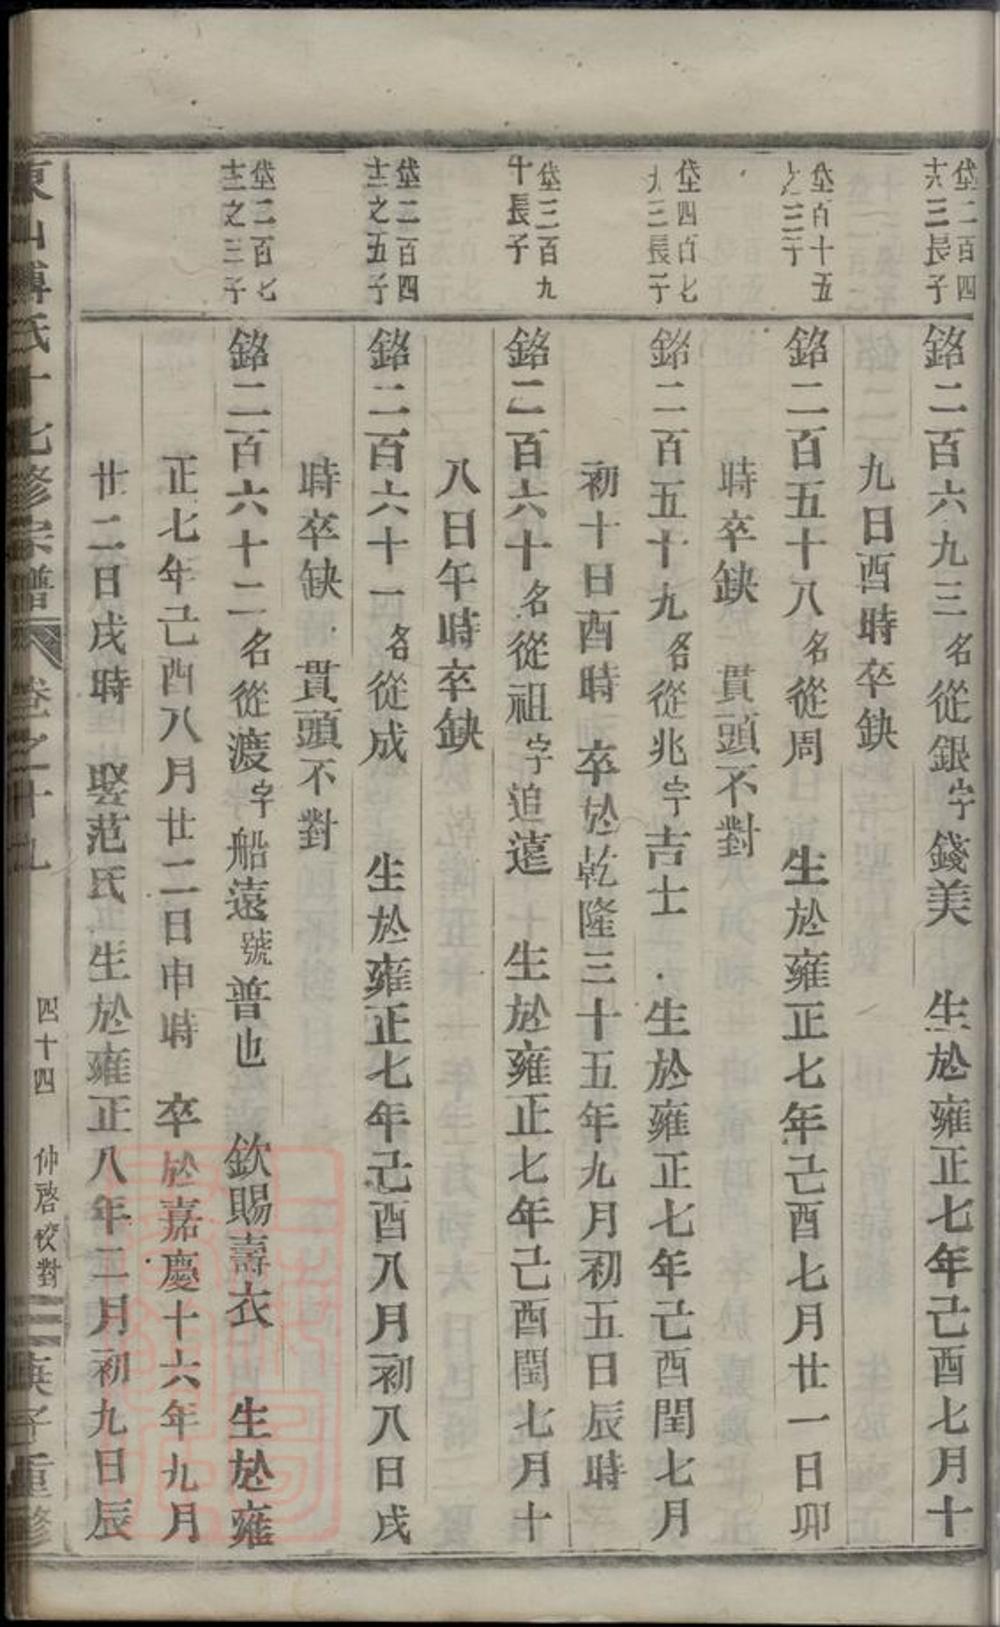 垡二百四
十六三長子
銘二百六九三名從銀字錢美　生於雍正七年己酉七月十
九日酉時卒缺
垡百十五
之三子
銘二百五十八名從周　生於雍正七年己酉七月廿一日卯
時卒缺　貫頭不對
垡四百七
三長子
銘二百五十九名從兆字吉士　生於雍正七年己酉閏七月
初十日酉時　卒於乾隆三十五年九月初五日辰時
垡三百九
十長子
銘二百六十名從祖字追遠　生於雍正七年己酉閏七月十
八日午時卒缺
垡二百四
十三之五子
銘二百六十一名從成　生於雍正七年己酉八月初八日戌
時卒缺　貫頭不對
垡二百七
十三之三子
銘二百六十二名從渡字船遠號普也　欽賜壽衣　生於雍
正七年己酉八月廿二日申時　卒於嘉慶十六年九月
廿二日戌時　娶范氏　生於雍正八年二月初九日辰
東山傅氏十七修宗譜　卷之十九　四十四　仲啓校對　重修